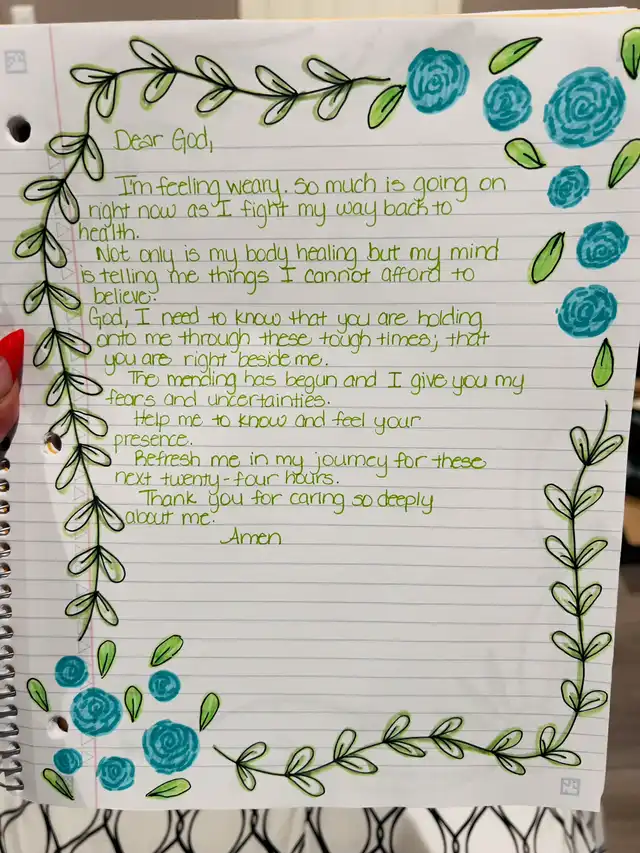 Dear God,
I'm feeling weary. So much is going on
right now as I fight my way back to
health.
Not only is my body healing but my mind
is telling me things I cannot afford to
believe.
God, I need to know that you are holding
onto me through these tough times; that
you are right beside me.
The mending has begun and I give you my
fears and uncertainties.
Help me to know and feel your
presence.
Refresh me in my journey for these
next twenty-four hours.
Thank you for caring so deeply
about me.
Amen